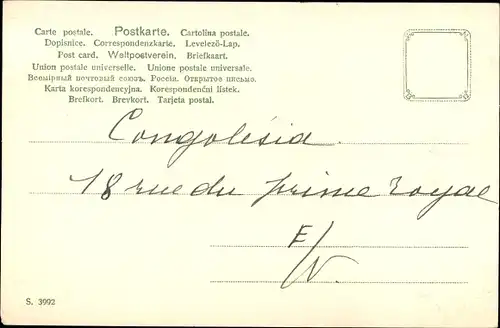 Carte postale. Postkarte. Cartolina postale.
Dopisnice. Correspondenzkarte. Levelező-Lap.
Post card. Weltpostverein. Briefkaart.
Union postale universelle. Unione postale universale.
Всемірный почтовый союзъ. Россія. Открытое письмо.
Karta korespondencyjna. Korespondenční lístek.
Brefkort. Brevkort. Tarjeta postal.
Congolésia
18 rue du prime Royal
E/V.
S. 3992